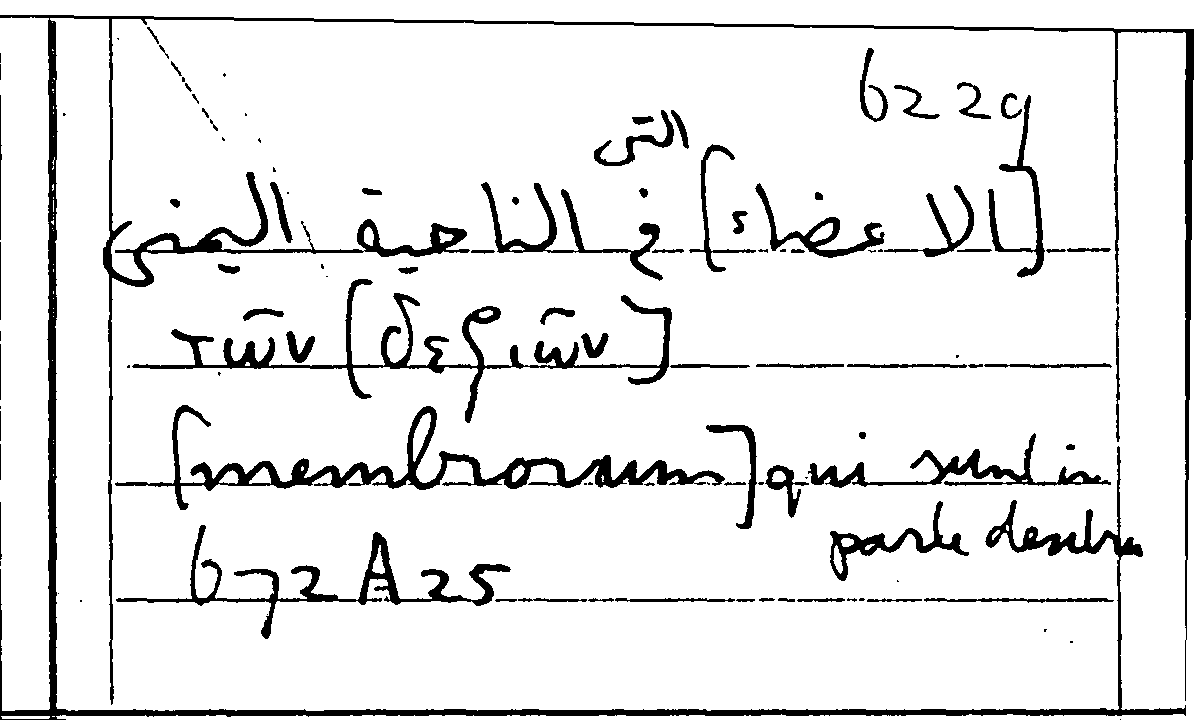 622q
[الاعضاء] التى فى الناحية اليمنى
τῶν [δεξιῶν]
[membrorum] qui sunt in
parte dextra
672 A 25